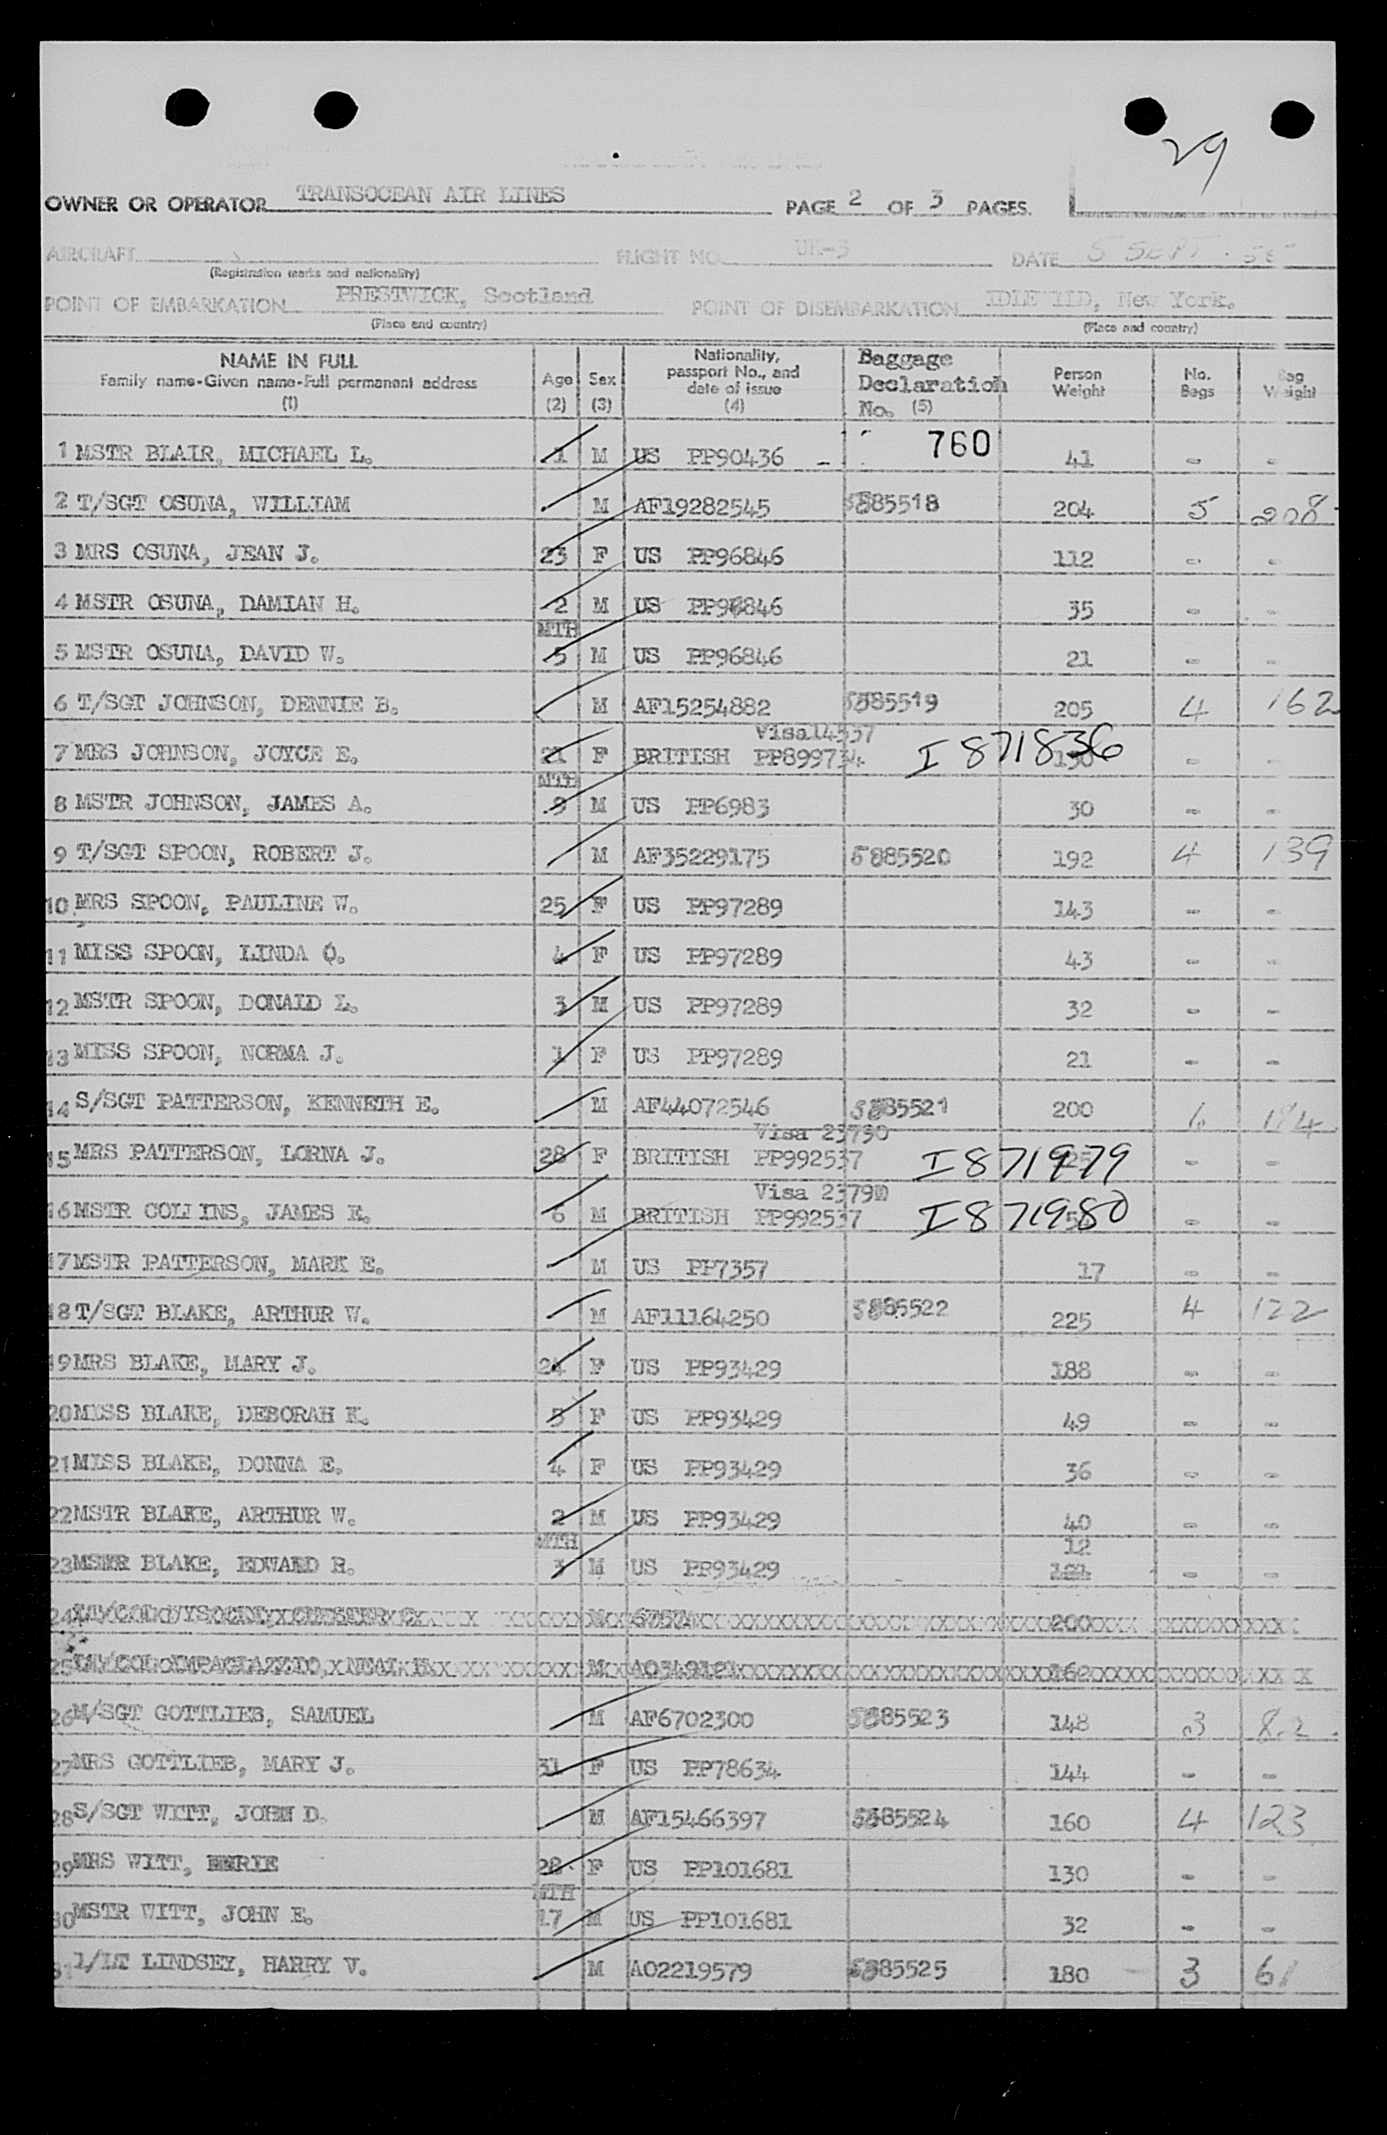 29
OWNER OR OPERATOR TRANSOCEAN AIR LINES PAGE 2 OF 3 PAGES.
AIRCRAFT FLIGHT NO. UK-3 DATE 5 SEPT.
(Registration marks and nationality)
POINT OF EMBARKATION PRESTWICK, Scotland POINT OF DISEMBARKATION IDLEWILD, New York.
(Place and country) (Place and country)
NAME IN FULL Family name-Given name-Full permanent address (1) Age (2) Sex (3) Nationality, passport No., and date of issue (4) Baggage Declaration No. (5) Person Weight No. Bags Bag Weight
1 MSTR BLAIR, MICHAEL L. 1 M US PP90436 - 760 41 - -
2 T/SGT OSUNA, WILLIAM M AF19282545 5885518 204 5 208
3 MRS OSUNA, JEAN J. 23 F US PP96846 112 - -
4 MSTR OSUNA, DAMIAN H. 2 M US PP96846 35 - -
MTH
5 MSTR OSUNA, DAVID W. 5 M US PP96846 21 - -
6 T/SGT JOHNSON, DENNIE B. M AF15254882 5885519 205 4 162
Visa14537
7 MRS JOHNSON, JOYCE E. 21 F BRITISH PP899734 I871836 - -
MTH
8 MSTR JOHNSON, JAMES A. 9 M US PP6983 30 - -
9 T/SGT SPOON, ROBERT J. M AF35229175 5885520 192 4 139
10 MRS SPOON, PAULINE W. 25 F US PP97289 143 - -
11 MISS SPOON, LINDA O. 4 F US PP97289 43 - -
12 MSTR SPOON, DONALD L. 3 M US PP97289 32 - -
13 MISS SPOON, NORMA J. 1 F US PP97289 21 - -
14 S/SGT PATTERSON, KENNETH E. M AF44072546 5885521 200 184
Visa 23790
15 MRS PATTERSON, LORNA J. 28 F BRITISH PP992537 I871979 - -
Visa 2379
16 MSTR COLLINS, JAMES E. 6 M BRITISH PP992537 I871980 - -
17 MSTR PATTERSON, MARK E. M US PP7357 17 - -
18 T/SGT BLAKE, ARTHUR W. M AF11164250 5885522 225 4 122
19 MRS BLAKE, MARY J. 24 F US PP93429 188 - -
20 MISS BLAKE, DEBORAH K. 5 F US PP93429 49 - -
21 MISS BLAKE, DONNA E. 4 F US PP93429 36 - -
22 MSTR BLAKE, ARTHUR W. 2 M US PP93429 40 - -
MTH 12
23 MSTR BLAKE, EDWARD R. 3 M US PP93429 - -
24 M 200
25 M AO349121 162
26 M/SGT GOTTLIEB, SAMUEL M AF6702300 5885523 148 3 82
27 MRS GOTTLIEB, MARY J. 31 F US PP78634 144 - -
28 S/SGT WITT, JOHN D. M AF15466397 5885524 160 4 123
29 MRS WITT, 28 F US PP101681 130 - -
MTH
30 MSTR WITT, JOHN E. 17 M US PP101681 32 - -
31 1/LT LINDSEY, HARRY V. M AO2219579 5885525 180 3 61